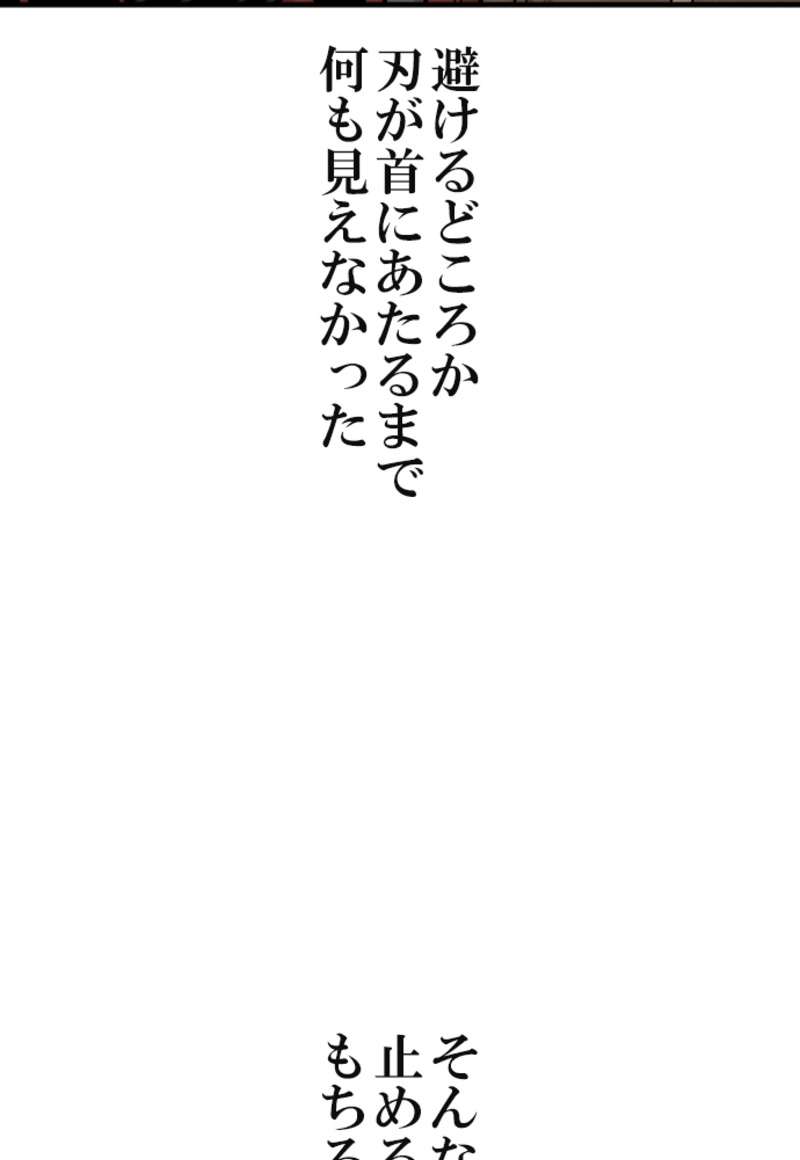 避けるどころか
刃が首にあたるまで
何も見えなかった
そんな
止める
もちろ